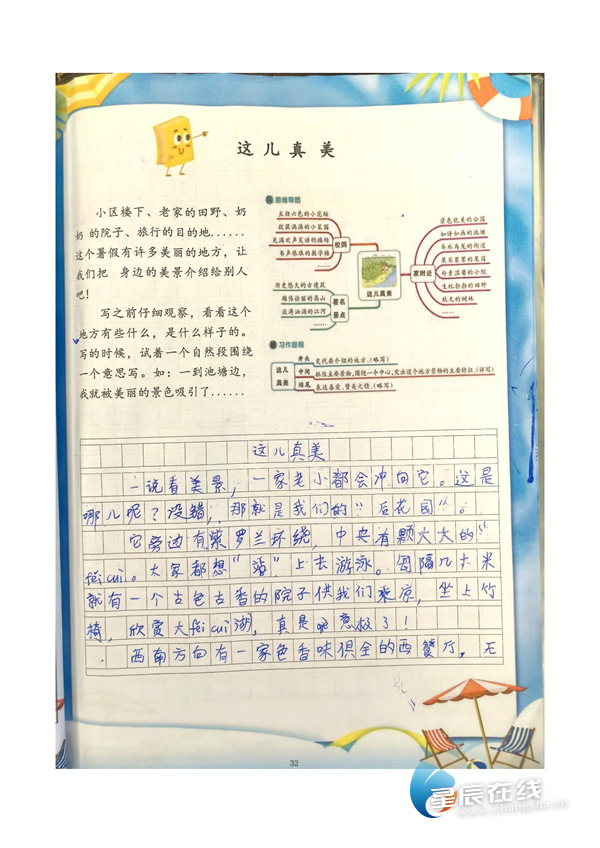 这儿真美
小区楼下、老家的田野、奶
奶的院子、旅行的目的地......
这个暑假有许多美丽的地方，让
我们把 身边的美景介绍给别人
吧!
写之前仔细观察，看看这个
地方有些什么，是什么样子的。
写的时候，试着一个自然段围绕
一个意思写。如：一到池塘边，
我就被美丽的景色吸引了......
思维导图
五颜六色的小花坛
挂菜满满的小菜园
充满欢声笑语的操场
书声琅琅的教学楼
......
校园
历史悠久的古建筑
雄伟壮丽的高山
波涛汹涌的江河
......
著名
景点
这儿真美
家附近
景色优美的公园
如诗如画的池塘
车水马龙的街道
果实累累的果园
朴素温馨的小院
生机勃勃的田野
秋天的树林
......
习作提纲
这儿
真美
开头 交代要介绍的地方。(略写)
中间 抓住主要景物,围绕一个中心,突出这个地方景物的主要特征。(详写)
结尾 表达喜爱、赞美之情。(略写)
这儿真美
一说看美景，一家老小都会冲向它。这是
哪儿呢？没错，那就是我们的“后花园”。
它旁边有紫罗兰环绕，中央有颗大大的“
fěi cuì。大家都想“站”上去游泳。每隔几十米
就有一个古色古香的院子供我们乘凉，坐上竹
椅，欣赏大fěi cuì湖，真是惬意极了！
西南方向有一家色香味俱全的西餐厅，无
32
星辰在线
www.changsha.cn